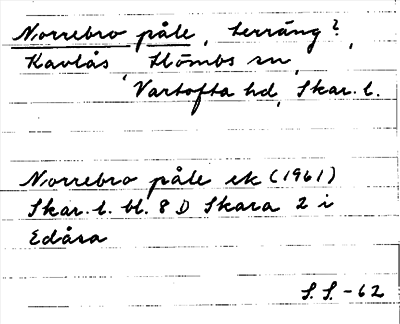 Norrebro påle, terräng?,
Kavlås, Hömbs sn,
Vartofta hd, Skar. l.
Norrebro påle ek (1961)
Skar. l. bl. 8 D Skara 2 i
Edåsa
S. S. -62